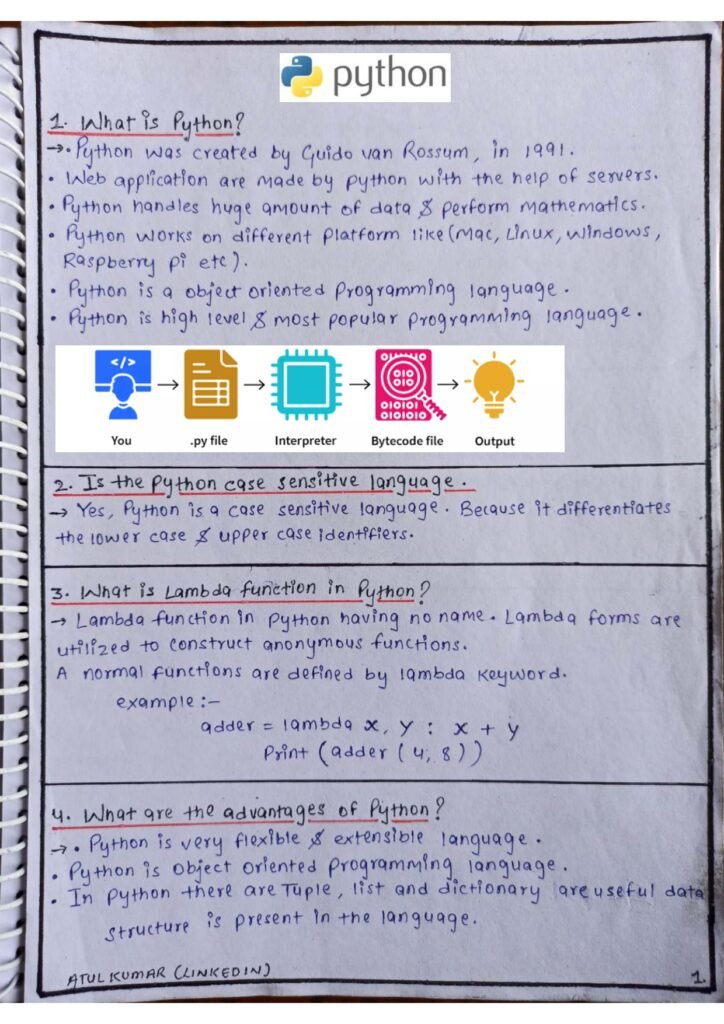 python
1. What is Python?
→ • Python was created by Guido van Rossum, in 1991.
• Web application are made by python with the help of servers.
• Python handles huge amount of data & perform mathematics.
• Python works on different platform like (Mac, Linux, Windows,
Raspberry pi etc).
• Python is a object oriented programming language.
• Python is high level & most popular programming language.
</>
You → .py file → Interpreter → Bytecode file → Output
2. Is the Python case sensitive language.
→ Yes, Python is a case sensitive language. Because it differentiates
the lower case & upper case identifiers.
3. What is Lambda function in Python?
→ Lambda function in Python having no name. Lambda forms are
utilized to construct anonymous functions.
A normal functions are defined by lambda keyword.
example :-
adder = lambda x, y : x + y
Print (adder (4, 8))
4. What are the advantages of Python?
→ • Python is very flexible & extensible language.
• Python is object oriented programming language.
• In Python there are Tuple, list and dictionary are useful data
structure is present in the language.
ATUL KUMAR (LINKEDIN)
1.